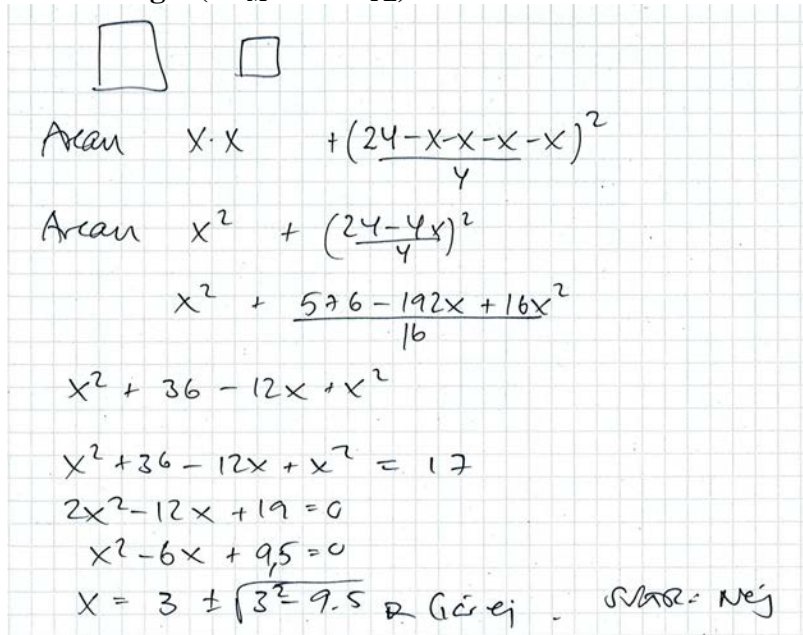 Arean x·x +(24-x-x-x-x)²/4
Arean x² + (24-4x)²/4
x² + 576-192x+16x²/16
x² + 36 - 12x + x²
x² + 36 - 12x + x² = 17
2x² - 12x + 19 = 0
x² - 6x + 9,5 = 0
x = 3 ± √3² - 9.5 Går ej. SVAR: Nej